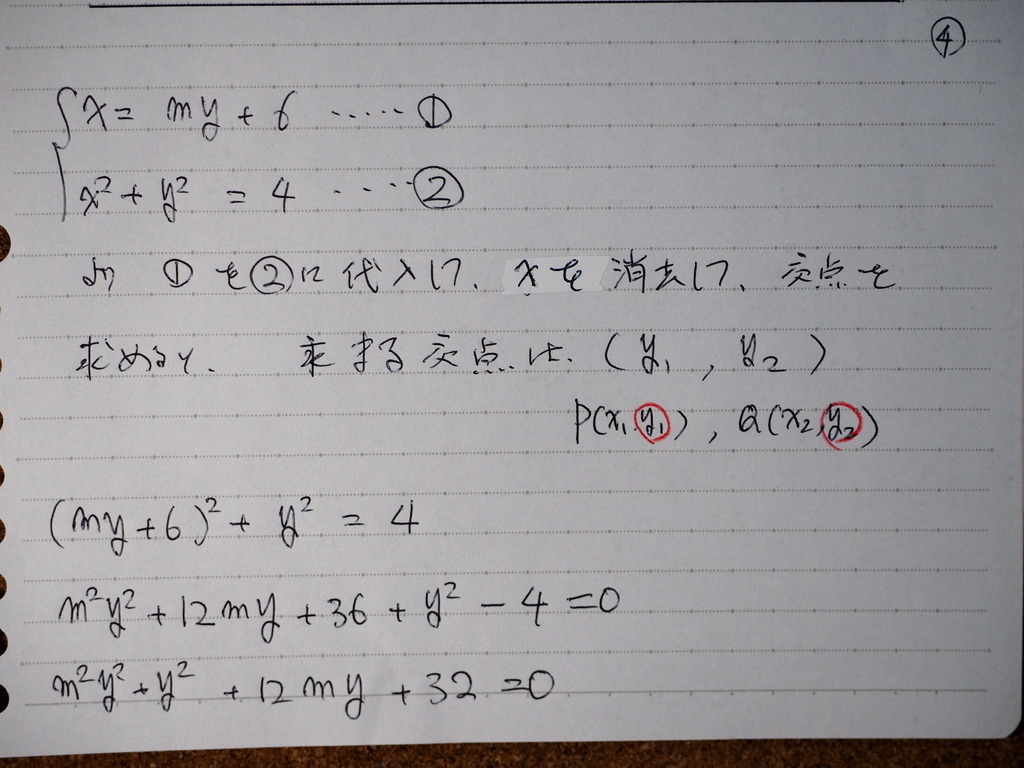 ④
x = my + 6 ..... ①
x² + y² = 4 ..... ②
より ① を②に代入して、xを消去して、交点を
求めると、 求まる交点は、(y₁, y₂)
P(x₁, y₁), Q(x₂, y₂)
(my + 6)² + y² = 4
m²y² + 12my + 36 + y² - 4 = 0
m²y² + y² + 12my + 32 = 0